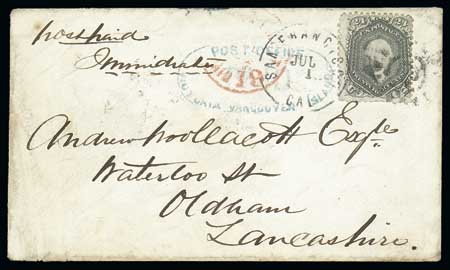 postpaid
Immediate
POST OFFICE
VICTORIA VANCOUVER ISLAND
18
SAN FRANCISCO
JUL
1
CAL
24 24
Andrew Woollacott Esqre
Waterloo St
Oldham
Lancashire.